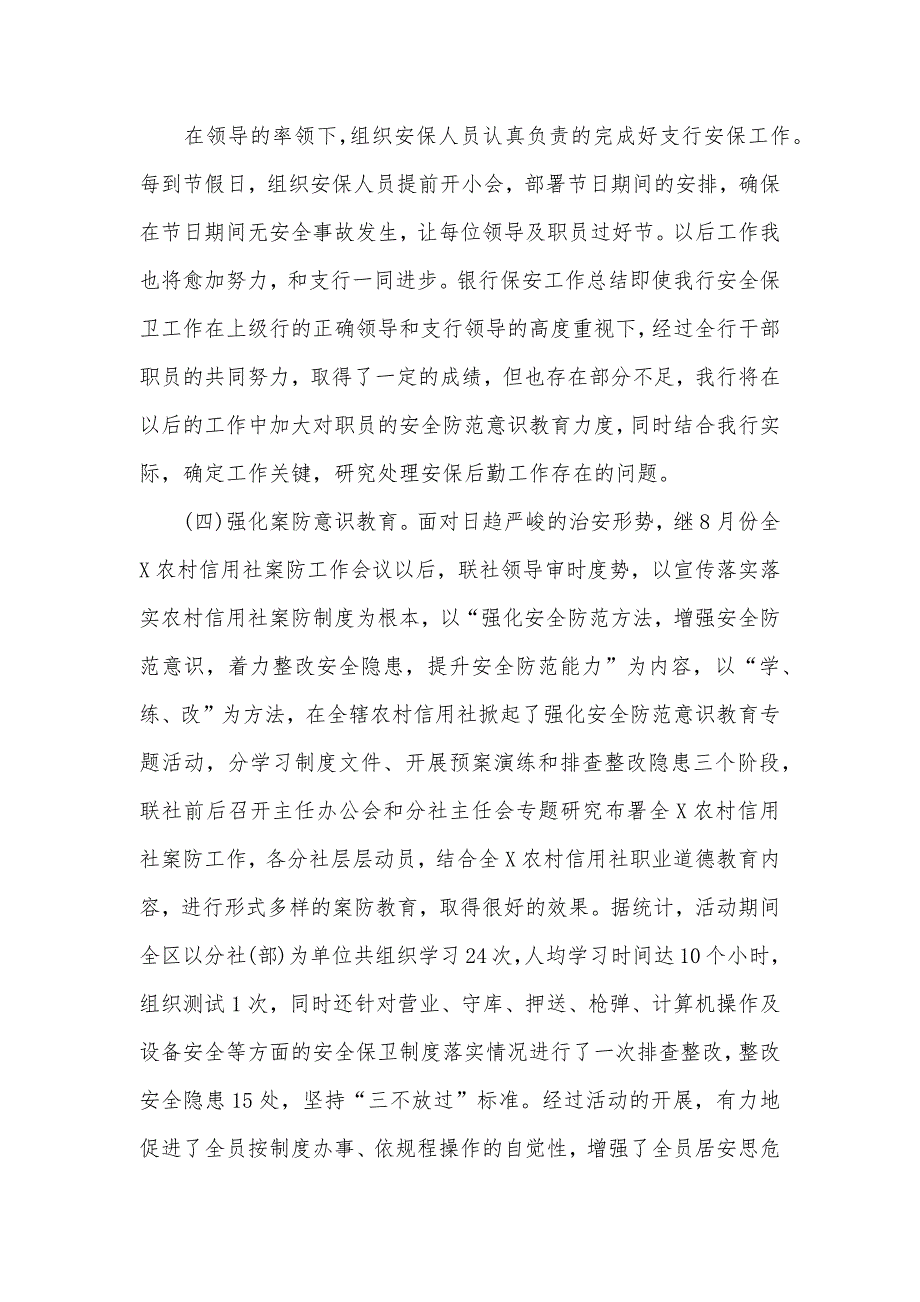 在领导的率领下，组织安保人员认真负责的完成好支行安保工作。
每到节假日，组织安保人员提前开小会，部署节日期间的安排，确保
在节日期间无安全事故发生，让每位领导及职员过好节。以后工作我
也将愈加努力，和支行一同进步。银行保安工作总结即使我行安全保
卫工作在上级行的正确领导和支行领导的高度重视下，经过全行干部
职员的共同努力，取得了一定的成绩，但也存在部分不足，我行将在
以后的工作中加大对职员的安全防范意识教育力度，同时结合我行实
际，确定工作关键，研究处理安保后勤工作存在的问题。
(四)强化案防意识教育。面对日趋严峻的治安形势，继 8 月份全
X 农村信用社案防工作会议以后，联社领导审时度势，以宣传落实落
实农村信用社案防制度为根本，以“强化安全防范方法，增强安全防
范意识，着力整改安全隐患，提升安全防范能力”为内容，以“学、
练、改”为方法，在全辖农村信用社掀起了强化安全防范意识教育专
题活动，分学习制度文件、开展预案演练和排查整改隐患三个阶段，
联社前后召开主任办公会和分社主任会专题研究布署全 X 农村信用
社案防工作，各分社层层动员，结合全 X 农村信用社职业道德教育内
容，进行形式多样的案防教育，取得很好的效果。据统计，活动期间
全区以分社(部)为单位共组织学习 24 次，人均学习时间达 10 个小时，
组织测试 1 次，同时还针对营业、守库、押送、枪弹、计算机操作及
设备安全等方面的安全保卫制度落实情况进行了一次排查整改，整改
安全隐患 15 处，坚持“三不放过”标准。经过活动的开展，有力地
促进了全员按制度办事、依规程操作的自觉性，增强了全员居安思危